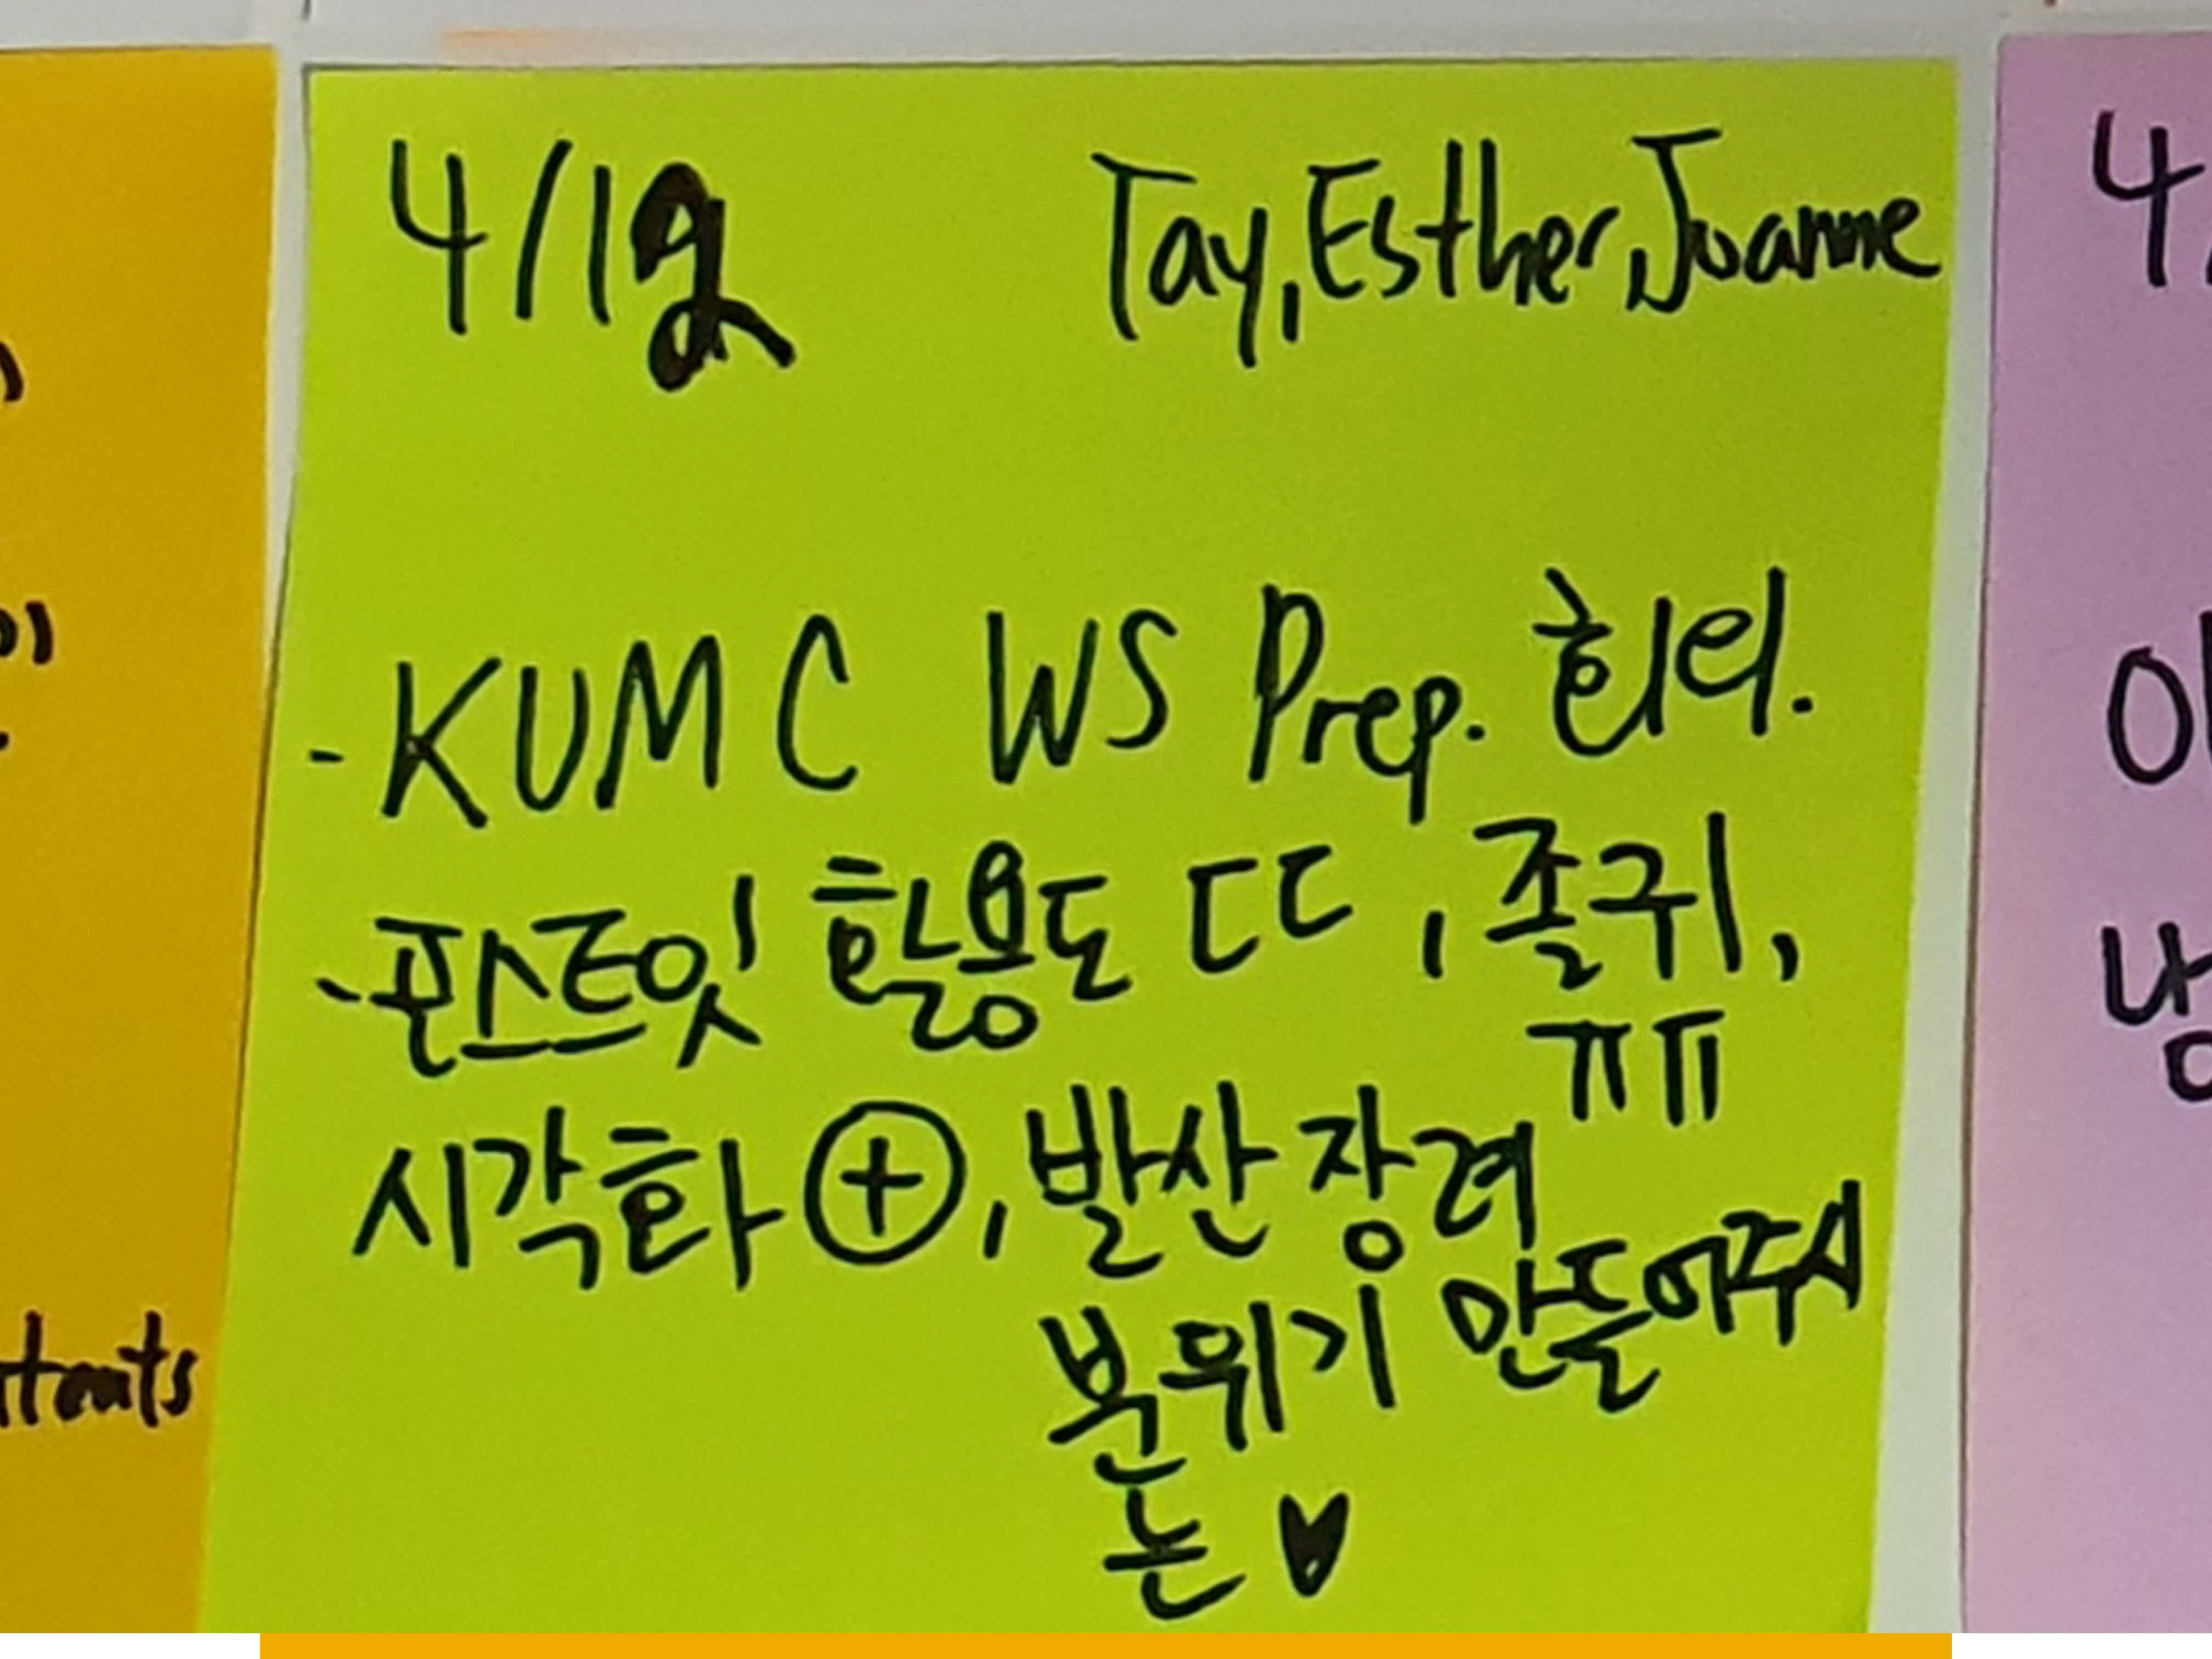 4/12
Tay, Esther, Joanne
- KUMC WS Prep. 회의.
- 포스트잇 활용도 ㄷㄷ, 졸귀,
ㅠㅠ
시각화 ⊕, 발산 장려
분위기 만들어주시
는 ♥
tents
4